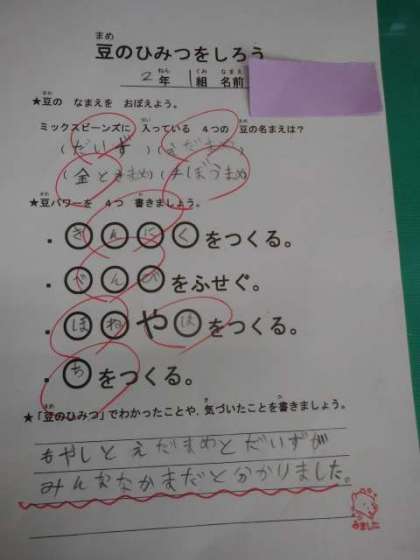 豆のひみつをしろう
2年 組 名前
★豆の なまえを おぼえよう。
ミックスビーンズに 入っている 4つの 豆の名まえは?
(だいず)(えだまめ)
(金ときまめ)(手ぼうまめ)
★豆パワーを 4つ 書きましょう。
・きんにくをつくる。
・がんびをふせぐ。
・ほねやはをつくる。
・ちをつくる。
★「豆のひみつ」でわかったことや、気づいたことを書きましょう。
もやしと えだまめと だいずが
みんななかまだと分かりました。
みました